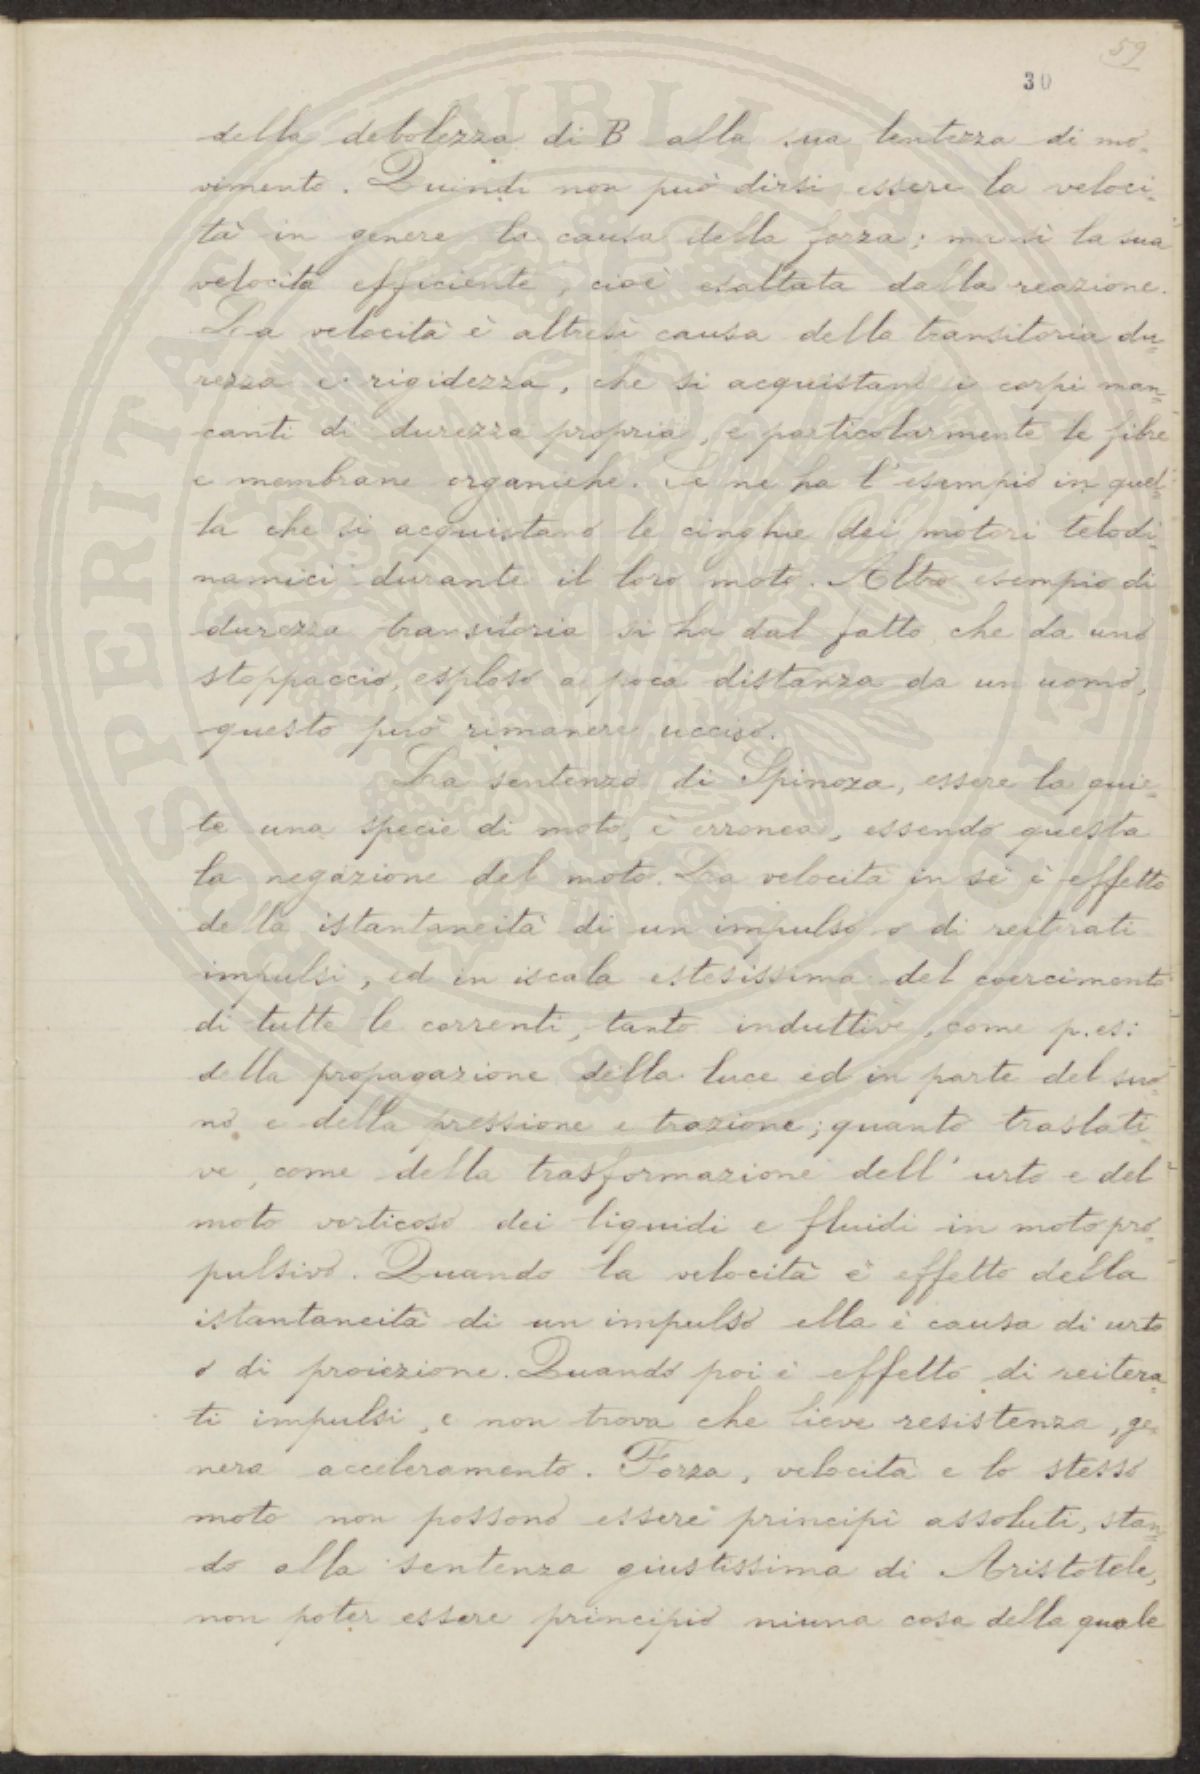 59
30
della debolezza di B alla sua lentezza di mo-
vimento. Quindi non può dirsi essere la veloci-
tà in genere la causa della forza; ma sì la sua
velocità efficiente, cioè esaltata dalla reazione.
La velocità è altresì causa della transitoria du-
rezza e rigidezza, che si acquistano i corpi man-
canti di durezza propria, e particolarmente le fibre
e membrane organiche. Se ne ha l'esempio in quel-
la che si acquistano le cinghie dei motori telodi-
namici durante il loro moto. Altro esempio di
durezza transitoria si ha dal fatto che da uno
stoppaccio, esploso a poca distanza da un uomo,
questo può rimanere ucciso.
La sentenza di Spinoza, essere la quie-
te una specie di moto, è erronea, essendo questa
la negazione del moto. La velocità in sè è effetto
della istantaneità di un impulso o di reiterati
impulsi, ed in iscala estesissima del coercimento
di tutte le correnti, tanto induttive, come p.es:
della propagazione della luce ed in parte del suo-
no e della pressione e trazione; quanto traslati-
ve, come della trasformazione dell'urto e del
moto vorticoso dei liquidi e fluidi in moto pro-
pulsivo. Quando la velocità è effetto della
istantaneità di un impulso ella è causa di urto
o di proiezione. Quando poi è effetto di reitera-
ti impulsi, e non trova che lieve resistenza, ge-
nera acceleramento. Forza, velocità e lo stesso
moto non possono essere principî assoluti, stan-
do alla sentenza giustissima di Aristotele,
non poter essere principio niuna cosa della quale